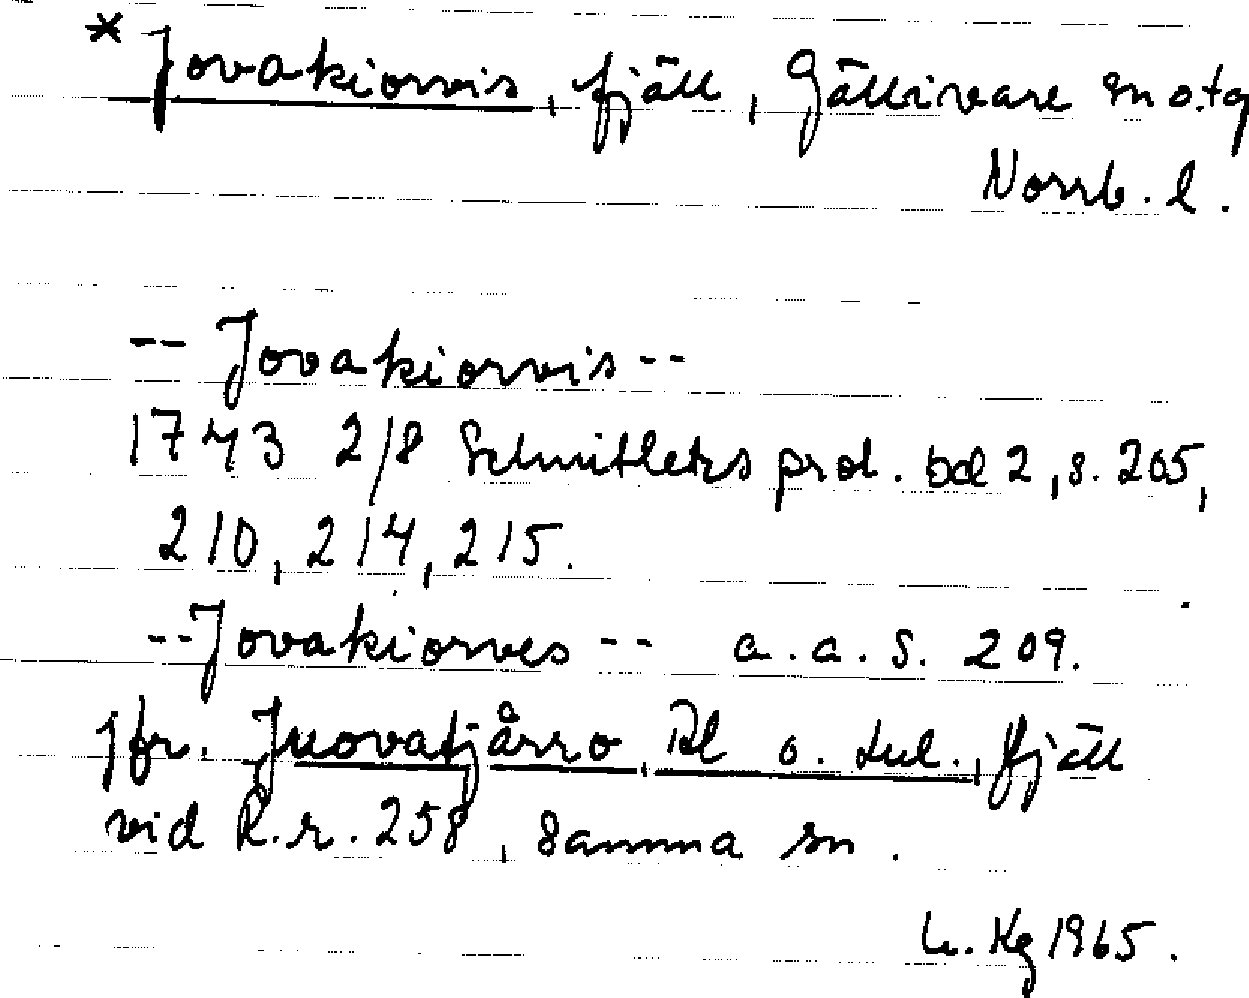 * Jovakiorvis, fjäll, Gällivare sn o. tg
Norrb. l.
-- Jovakiorvis --
1743 2/8 Schnitlers prot. bd 2, s. 205,
210, 214, 215.
-- Jovakiorves -- a. a. S. 209.
Jfr. Juovatjårro, Rl o. Lul., fjäll
vid R.r. 258, samma sn.
Kg 1965.